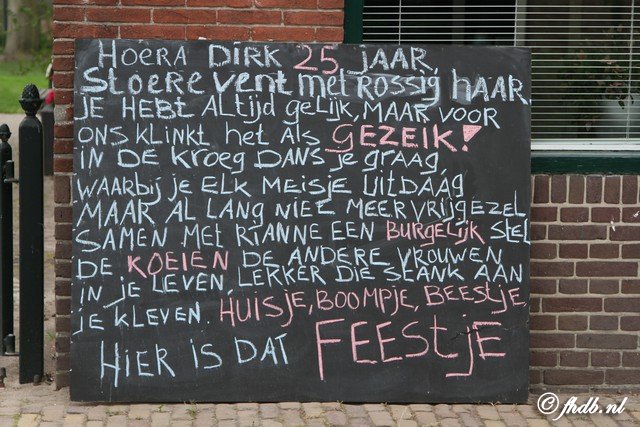 HOERA DIRK 25 JAAR,
STOERE VENT MET ROSSIG HAAR
JE HEBT ALTIJD GELIJK, MAAR VOOR
ONS KLINKT HET ALS GEZEIK!
IN DE KROEG DANS JE GRAAG,
WAARBIJ JE ELK MEISJE UITDAAG
MAAR AL LANG NIET MEER VRIJGEZEL
SAMEN MET RIANNE EEN BURGELIJK STEL
DE KOEIEN DE ANDERE VROUWEN
IN JE LEVEN, LEKKER DIE STANK AAN
JE KLEVEN. HUISJE, BOOMPJE, BEESTJE
HIER IS DAT FEESTJE
© fhdb.nl